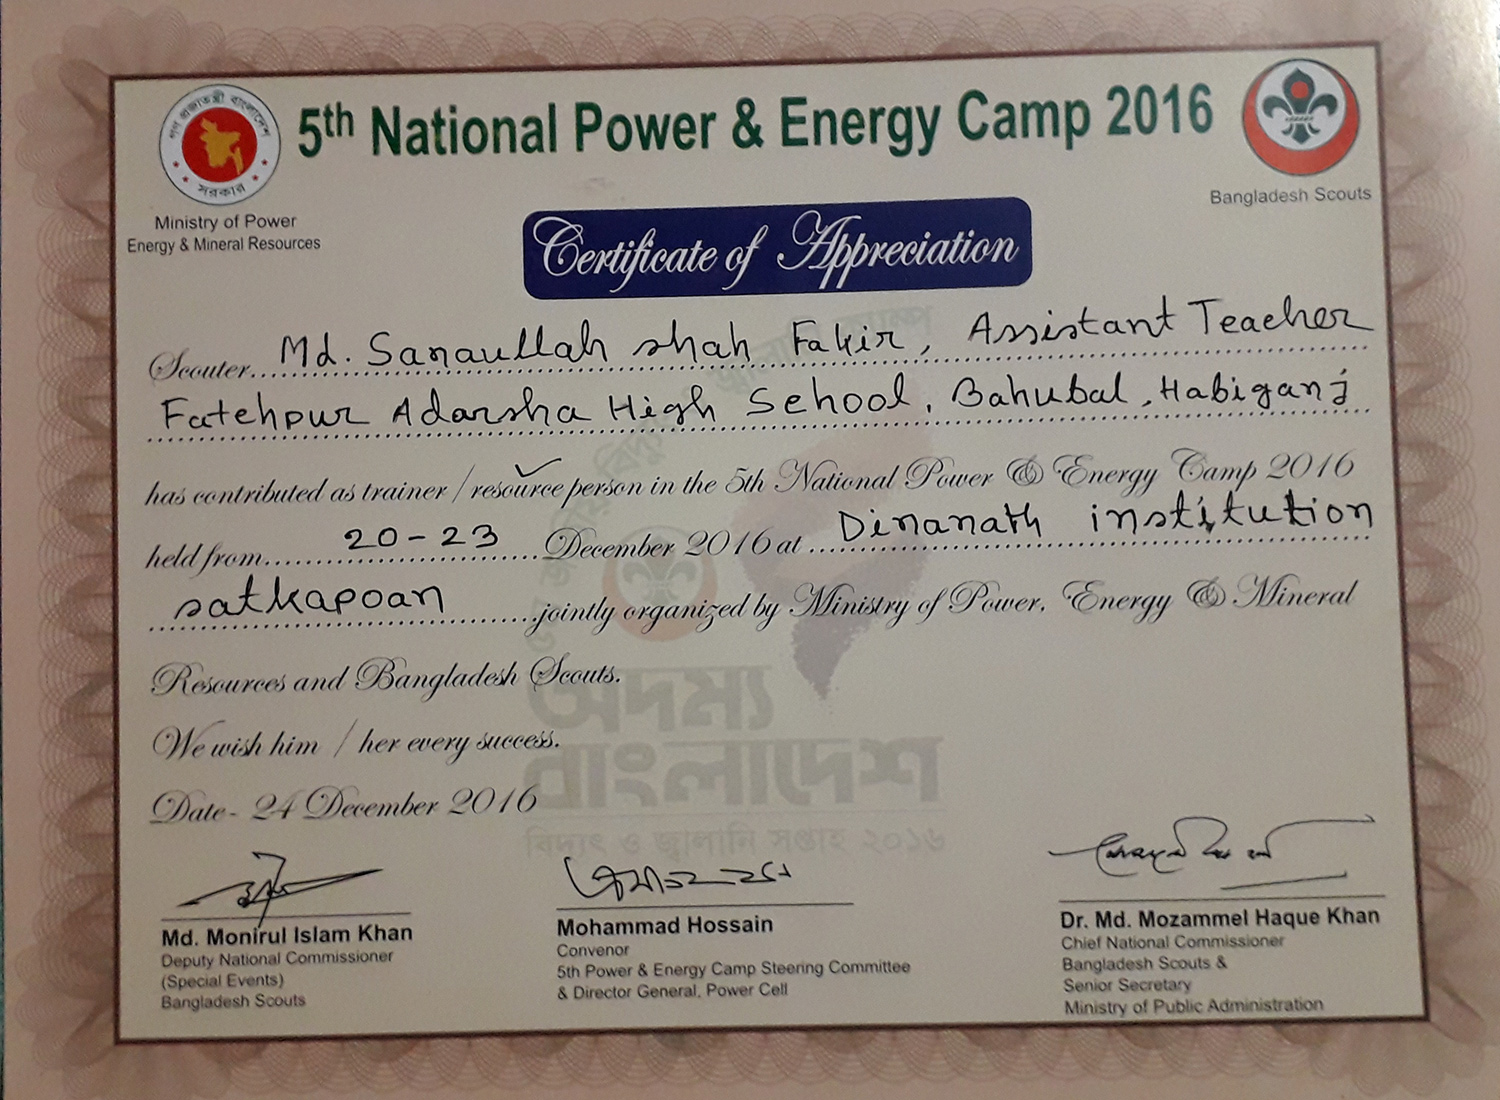 5th National Power & Energy Camp 2016
গণ প্রজাতন্ত্রী বাংলাদেশ
সরকার
Ministry of Power
Energy & Mineral Resources
Bangladesh Scouts
Certificate of Appreciation
Scouter... Md. Sanaullah shah Fakir, Assistant Teacher
Fatehpur Adarsha High School, Bahubal, Habiganj
has contributed as trainer / resource person in the 5th National Power & Energy Camp 2016
held from... 20-23 ...December 2016 at ... Dinanath institution
satkapoan ...jointly organized by Ministry of Power, Energy & Mineral
Resources and Bangladesh Scouts.
We wish him / her every success.
Date- 24 December 2016
অদম্য
বাংলাদেশ
বিদ্যুৎ ও জ্বালানি সপ্তাহ ২০১৬
Md. Monirul Islam Khan
Deputy National Commissioner
(Special Events)
Bangladesh Scouts
Mohammad Hossain
Convenor
5th Power & Energy Camp Steering Committee
& Director General, Power Cell
Dr. Md. Mozammel Haque Khan
Chief National Commissioner
Bangladesh Scouts &
Senior Secretary
Ministry of Public Administration